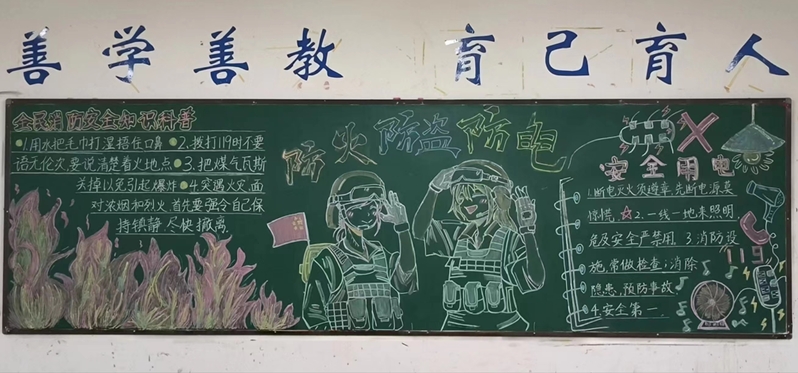 善学善教 育己育人
全民消防安全知识科普
1.用水把毛巾打湿捂住口鼻 2.拨打119时不要
语无伦次,要说清楚着火地点 3.把煤气瓦斯
关掉以免引起爆炸 4.突遇火灾,面
对浓烟和烈火,首先要强令自己保
持镇静,尽快撤离.
防火防盗防电
安全用电
1.断电灭火须遵章,先断电源莫
惊慌. 2.一线一地来照明,
危及安全严禁用 3.消防设
施,常做检查;消除
隐患,预防事故
4.安全第一.
119